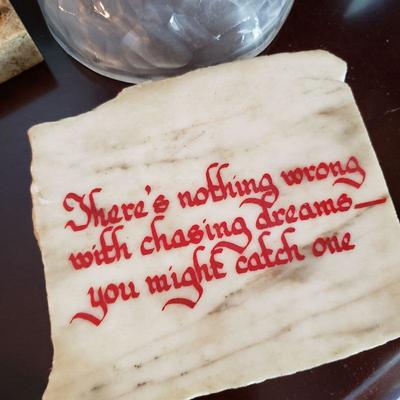 There's nothing wrong
with chasing dreams—
you might catch one